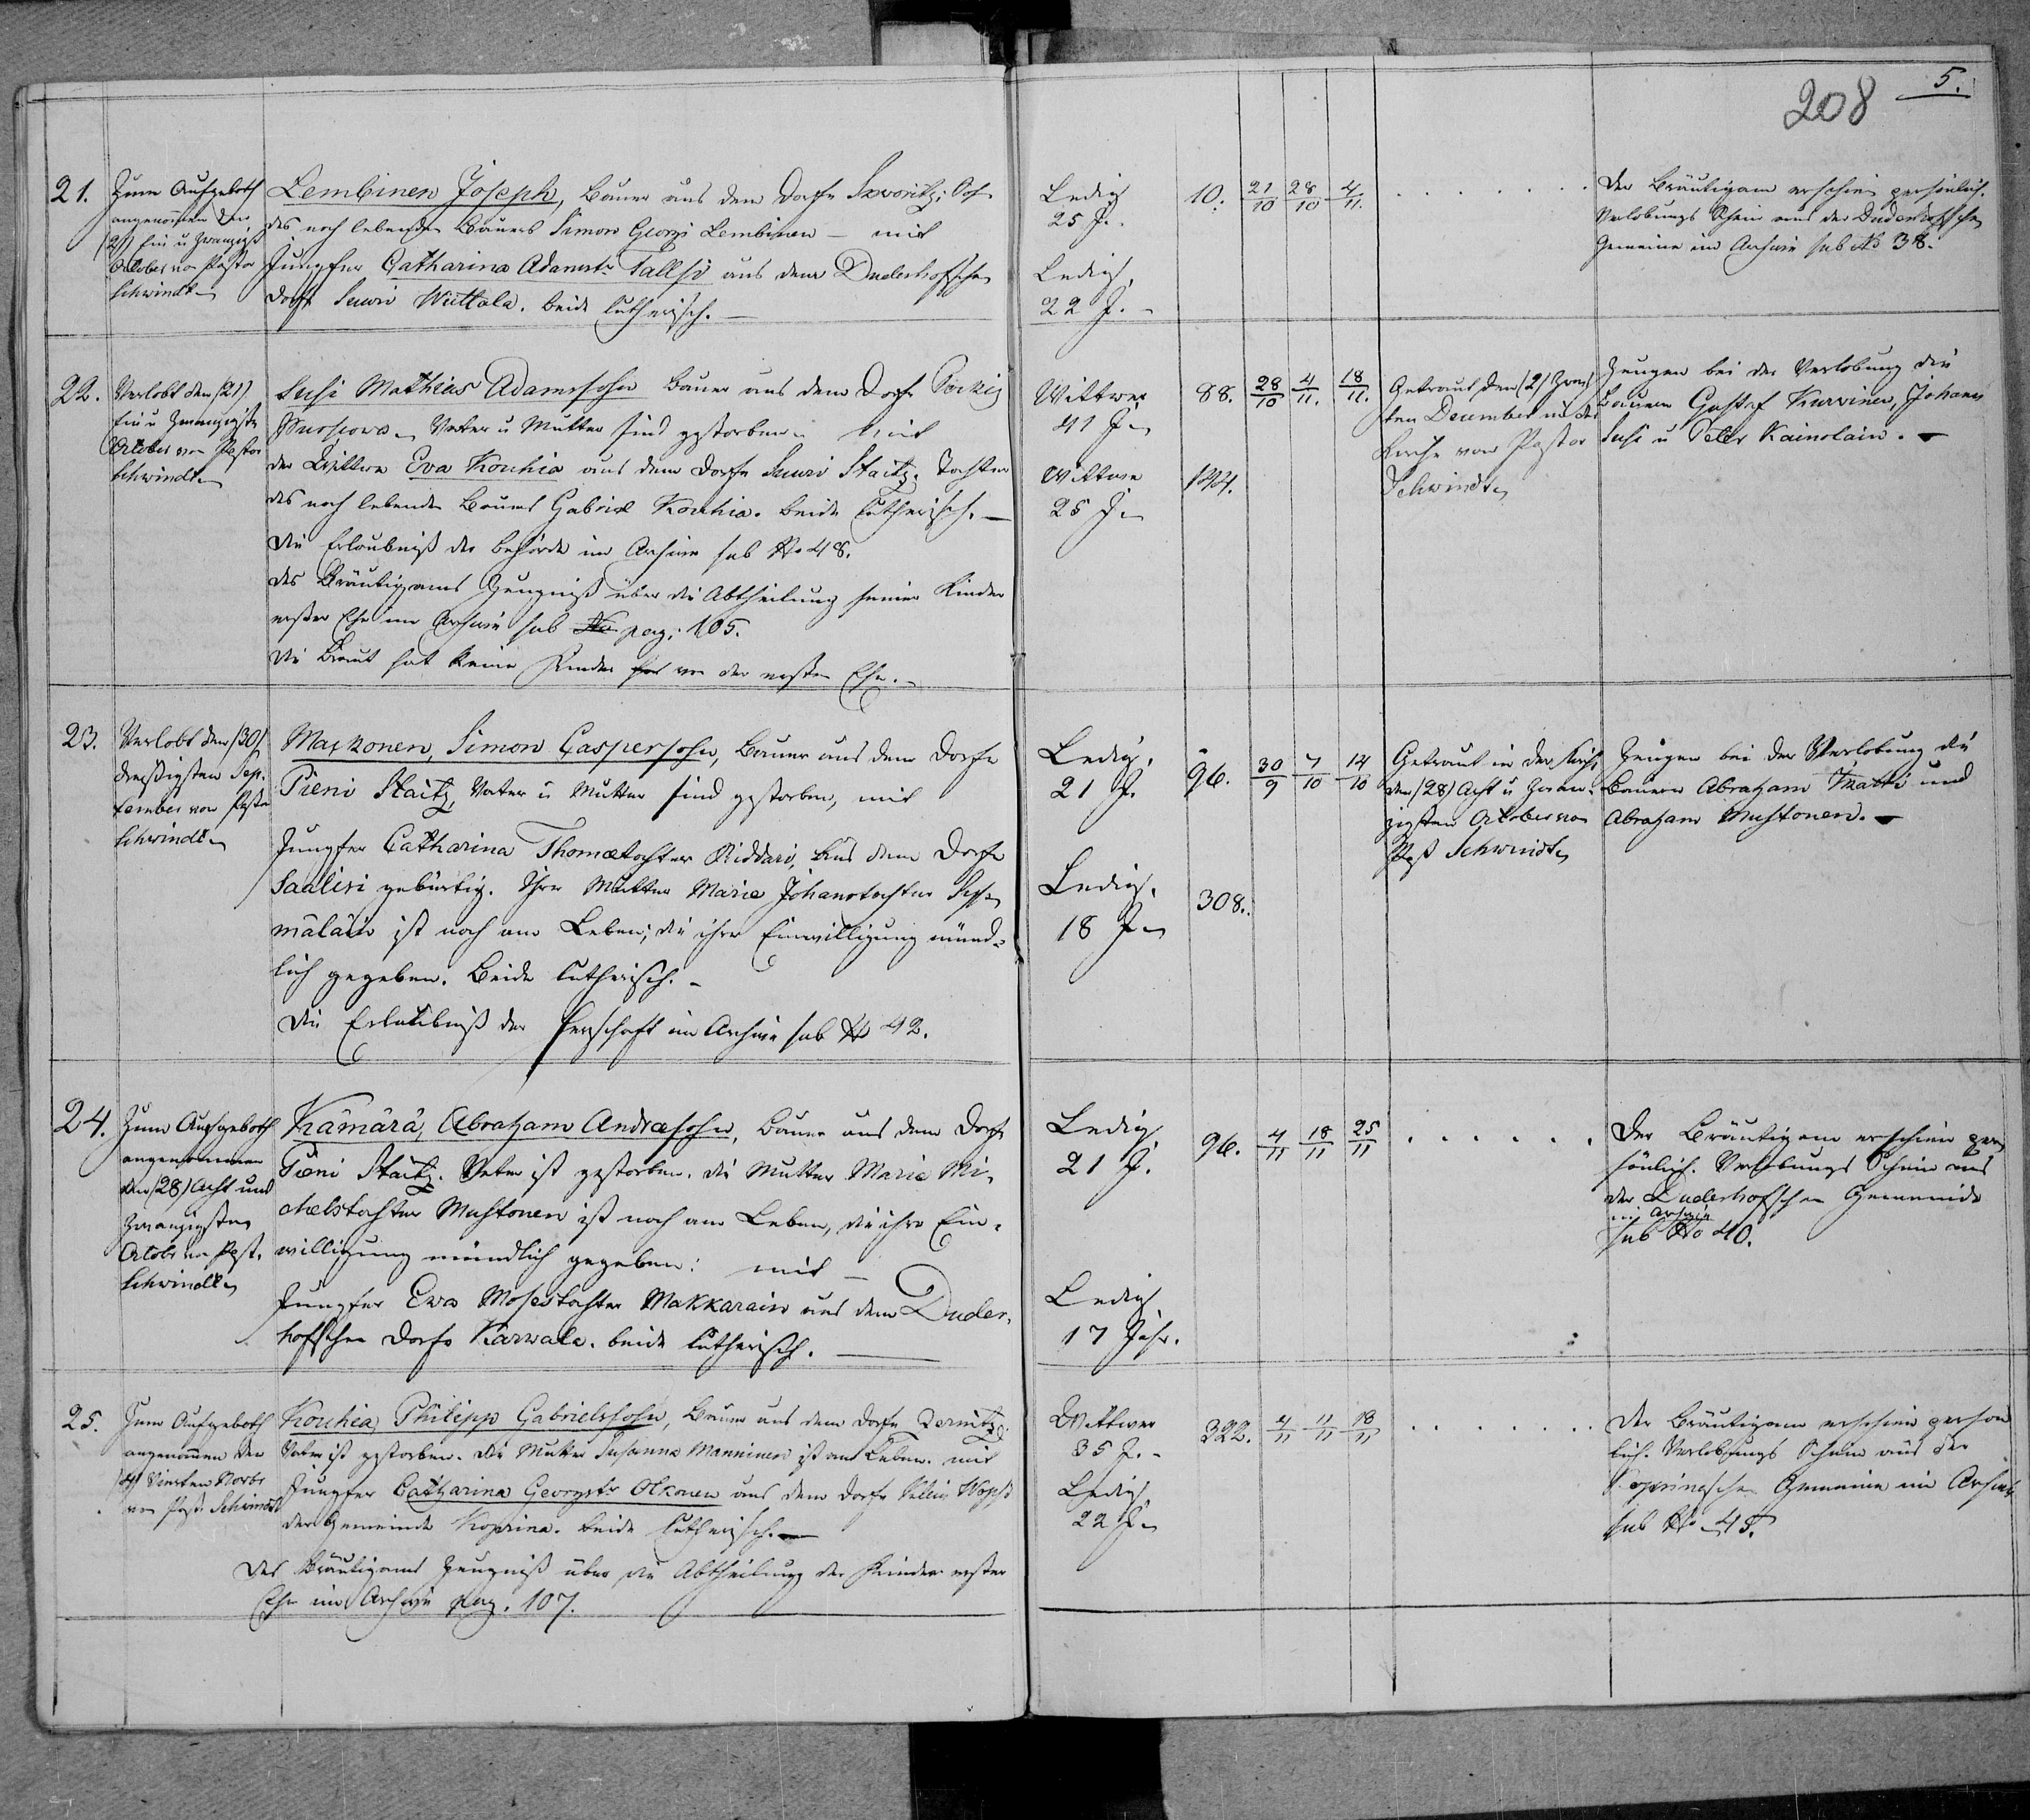 208
5.
21.
Zum Aufgeboth
angenommen den
(21) Ein u Zwanzigst
October von Pastor
Schwindt
Lembinen Joseph, Bauer aus dem Dorfe Skworitz; Sohn
des noch lebenden Bauers Simon Georgi Lembinen – mit
Jungfer Catharina Adamstr. Tallsi aus dem Duderhofschen
Dorfe Suuri Wiittala. beide lutherisch. –
Ledig
25 J.
Ledig,
22 J. –
10.
21/10
28/10
4/11.
Der Bräutigam erschien persönlich.
Verlobungs Schein aus der Duderhofschen
Gemeine im Archiv sub No 38.
22.
Verlobt den (21)
Ein u Zwanzigsten
October von Pastor
Schwindt
Susi Mathias Adamssohn Bauer aus dem Dorfe
Vater u Mutter sind gestorben mit
der Wittwe Eva Koukia aus dem Dorfe Suuri Staitz. Tochter
des noch lebenden Bauers Gabriel Koukia. beide lutherisch. –
Die Erlaubniß der Behörde im Archiv sub No 48.
Des Bräutigams Zeugniß über die Abtheilung seiner Kinder
erster Ehe im Archiv sub No pag: 105.
Die Braut hat keine Kinder von der ersten Ehe. –
Wittwer
41 J.
Wittwe
25 J.
88.
144.
28/10
4/11.
18/11.
Getraut den (2) Zwei-
ten December in der
Kirche von Pastor
Schwindt
Zeugen bei der Verlobung die
Bauern Gustaf Kurvinen, Johann
Susi u Peter Kainolain. –
23.
Verlobt den (30)
dreißigsten Sep-
tember von Pastor
Schwindt
Maskonen, Simon Caspersohn, Bauer aus dem Dorfe
Pieni Staitz, Vater u Mutter sind gestorben, mit
Jungfer Catharina Thomætochter Kiddari, aus dem Dorfe
Saalisi gebürtig. Ihre Mutter Marie Johanstochter
mäläin ist noch am Leben; die ihre Einwilligung münd-
lich gegeben. Beide lutherisch. –
Die Erlaubniß der Herschaft im Archiv sub No 42.
Ledig,
21 J.
Ledig,
18 J.
96.
308.
30/9
7/10
14/10
Getraut in der Kirche
den (28) Acht u Zwan-
zigsten October von
Past Schwindt
Zeugen bei der Verlobung die
Bauern Abraham Tratti und
Abraham Mustonen. –
24.
Zum Aufgeboth
angenommen
den (28) Acht und
Zwanzigsten
Octobr von Past.
Schwindt
Kämärä, Abraham Andræsohn, Bauer aus dem Dorfe
Pieni Staitz. Vater ist gestorben. die Mutter Maria Mi-
chelstochter Mustonen ist noch am Leben, die ihre Ein-
willigung mündlich gegeben: mit –
Jungfer Ewa Mosestochter Makkarain aus dem Duder-
hofschen Dorfe Karwala. beide lutherisch. –
Ledig,
21 J.
Ledig
17 Jahr.
96.
4/11
18/11
25/11
Der Bräutigam erschien per-
sönlich. Verlobungs Schein aus
der Duderhofschen Gemeinde
im Archiv
sub No 40.
25.
Zum Aufgeboth
angenommen den
(4) Vierten Novbr
von Past. Schwindt
Koukia, Philipp Gabrielssohn, Bauer aus dem Dorfe
Vater ist gestorben. Die Mutter Susanna Manninen ist am Leben. mit
Jungfer Catharina Georgstr Olkonen aus dem Dorfe
der Gemeinde Koprina. beide lutherisch. –
Des Bräutigams Zeugniß über die Abtheilung der Kinder erster
Ehe im Archiv pag. 107.
Wittwer
35 J. –
Ledig,
22 J.
322.
4/11
11/11
18/11
Der Bräutigam erschien persön
lich. Verlobungs Schein aus der
Koprinaschen Gemeine im Archiv
sub No 45.